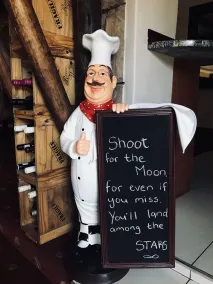 FRAGILE
Shoot
for the
Moon,
for even if
you miss.
You'll land
among the
STARS